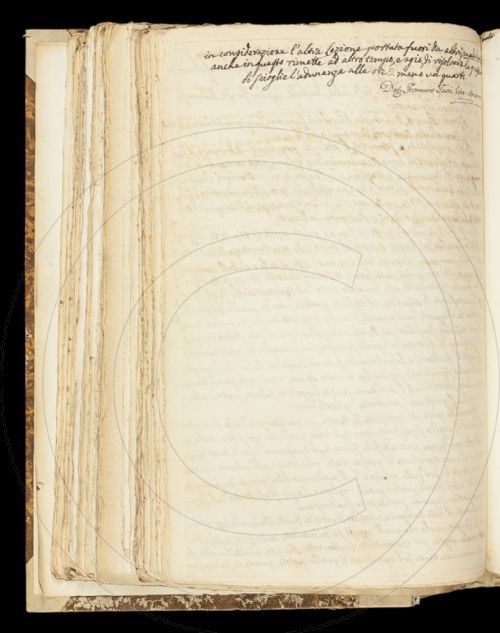 in considerazione l'altra lezione portata fuori da altri
anche in questo rimette ad altro tempo, e agio, di risolvere la
Si scioglie l'adunanza alle ore 2 meno un quarto
Dott. Francesco